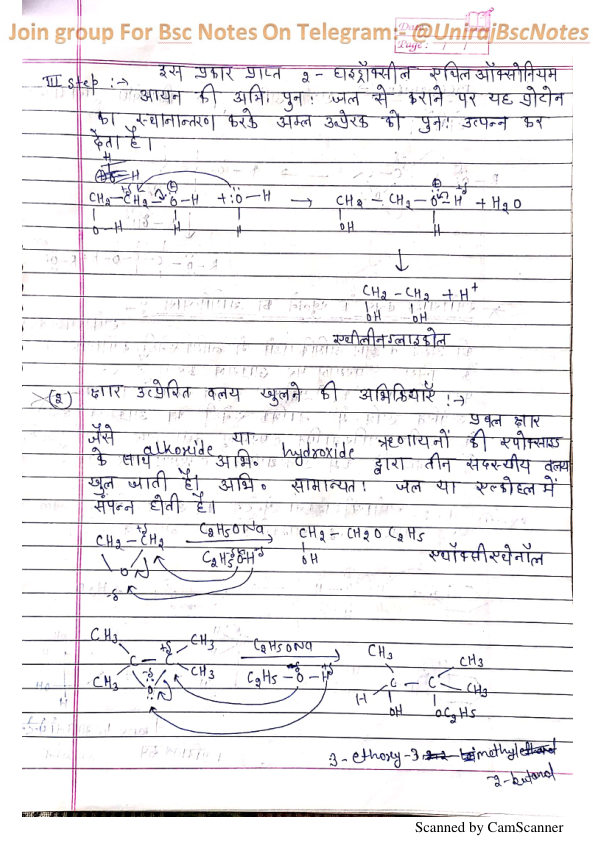 Join group For Bsc Notes On Telegram:- @UnirajBscNotes
III step :→ इस प्रकार प्राप्त 2-हाइड्रॉक्सील एथिल ऑक्सोनियम
आयन की अभि० पुनः जल से कराने पर यह प्रोटोन
का स्थानान्तरण करके अम्ल उत्प्रेरक को पुनः उत्पन्न कर
देता है।
CH2-CH2-O-H + O-H → CH2-CH2-O-H + H2O
O-H H H OH H
↓
CH2-CH2 + H+
OH OH
एथीलीन ग्लाइकोल
(2) क्षार उत्प्रेरित वलय खुलने की अभिक्रियाएँ :→
प्रबल क्षार
जैसे alkoxide या hydroxide ऋणायनों की एपोक्साइड
के साथ अभि० द्वारा तीन सदस्यीय वलय
खुल जाती है। अभि० सामान्यतः जल या एल्कोहल में
संपन्न होती है।
CH2-CH2 C2H5ONa CH2-CH2OC2H5
O C2H5OH OH एथॉक्सीएथेनॉल
CH3 CH3 C2H5ONa CH3 CH3
C-C C-C
CH3 O CH3 C2H5-O-H H CH3
OH OC2H5
3-ethoxy-3 methyl
2-butanol
Scanned by CamScanner